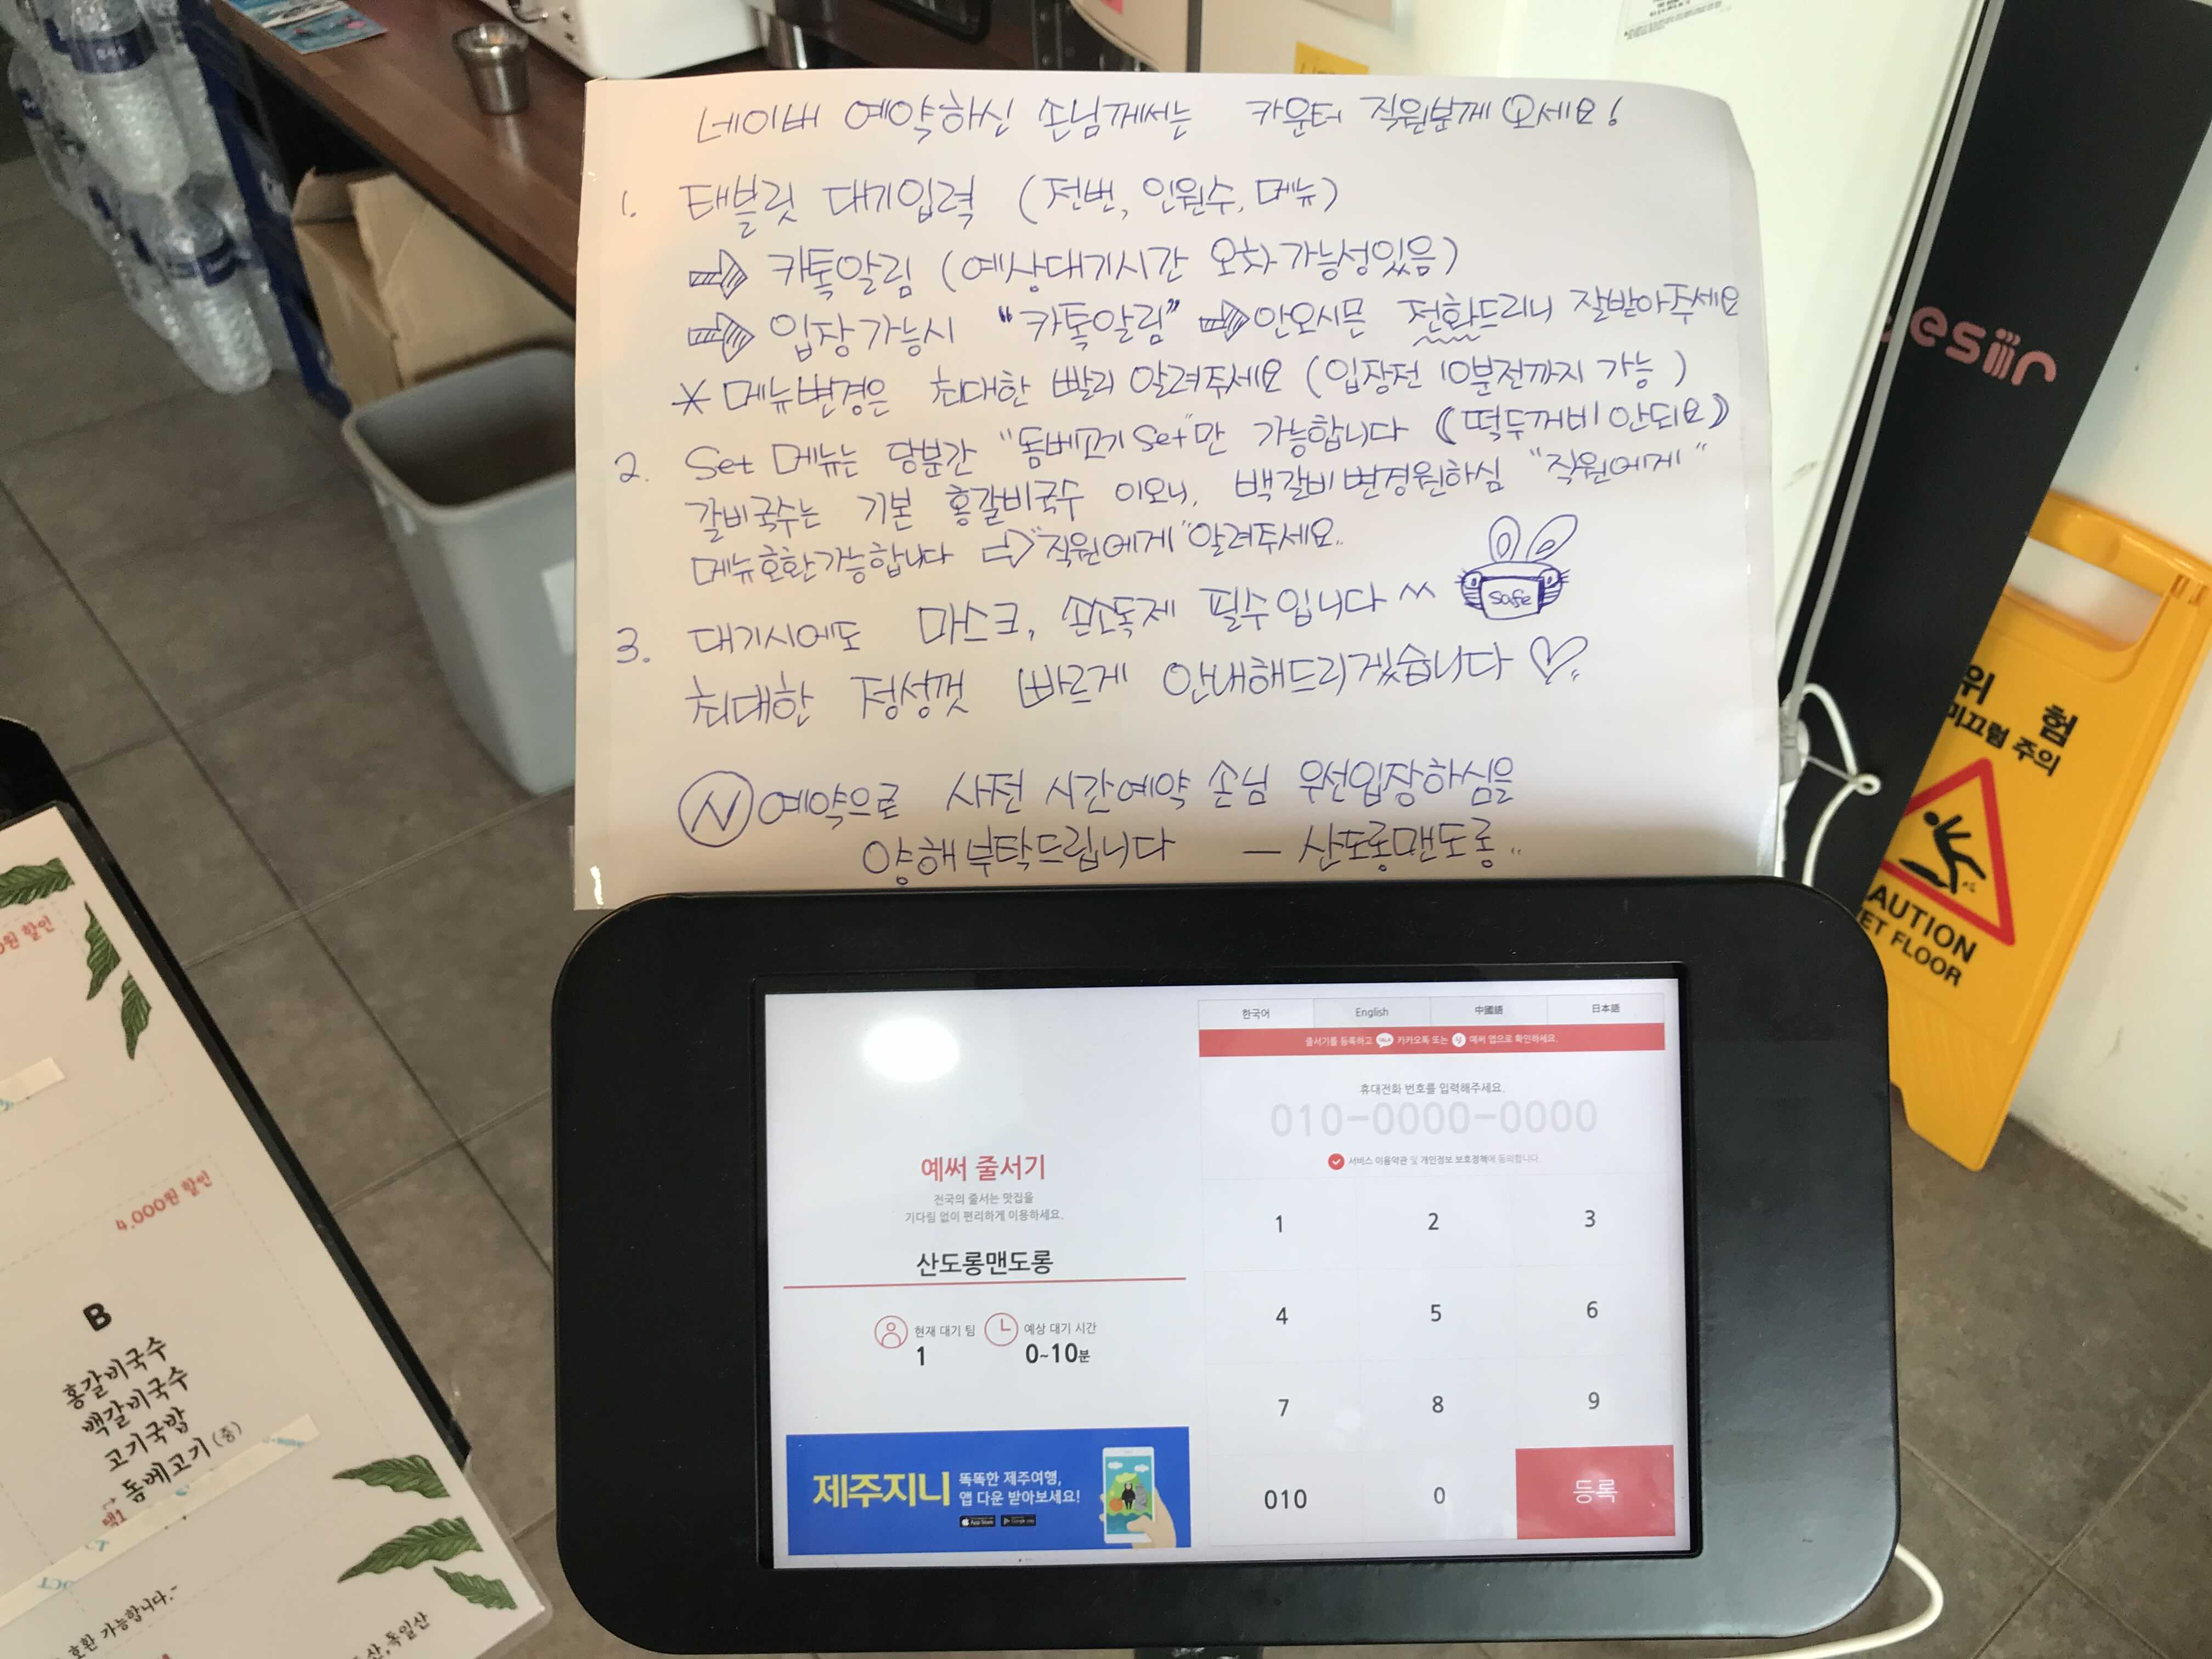 네이버 예약하신 손님께서는 카운터 직원분께 오세요!
1. 태블릿 대기입력 (전번, 인원수, 메뉴)
카톡알림 (예상대기시간 오차가능성있음)
입장가능시 "카톡알림" 안오시믄 전화드리니 잘받아주세요
* 메뉴변경은 최대한 빨리 알려주세요 (입장전 10분전까지 가능)
2. Set 메뉴는 당분간 "돔베고기 Set"만 가능합니다 (떡두꺼비 안되요)
갈비국수는 기본 홍갈비국수 이오니, 백갈비변경원하심 "직원에게"
메뉴호환가능합니다 ⇨ "직원에게" 알려주세요..
safe
3. 대기시에도 마스크, 손소독제 필수입니다 ^^
최대한 정성껏 빠르게 안내해드리겠습니다 ♡..
N 예약으로 사전 시간예약 손님 우선입장하심을
양해부탁드립니다 — 산도롱맨도롱..
한국어 English 中國語 日本語
줄서기를 등록하고 TALK 카카오톡 또는 예써 앱으로 확인하세요.
휴대전화 번호를 입력해주세요.
010-0000-0000
서비스 이용약관 및 개인정보 보호정책에 동의합니다.
예써 줄서기
전국의 줄서는 맛집을
기다림 없이 편리하게 이용하세요.
산도롱맨도롱
현재 대기 팀
1
예상 대기 시간
0~10분
제주지니
똑똑한 제주여행,
앱 다운 받아보세요!
App Store Google play
1 2 3
4 5 6
7 8 9
010 0 등록
esiir
위 험
미끄럼 주의
AUTION
ET FLOOR
원 할인
4,000원 할인
B
홍갈비국수
백갈비국수
고기국밥
돔베고기 (중)
택1
호환 가능합니다.~
산, 독일산